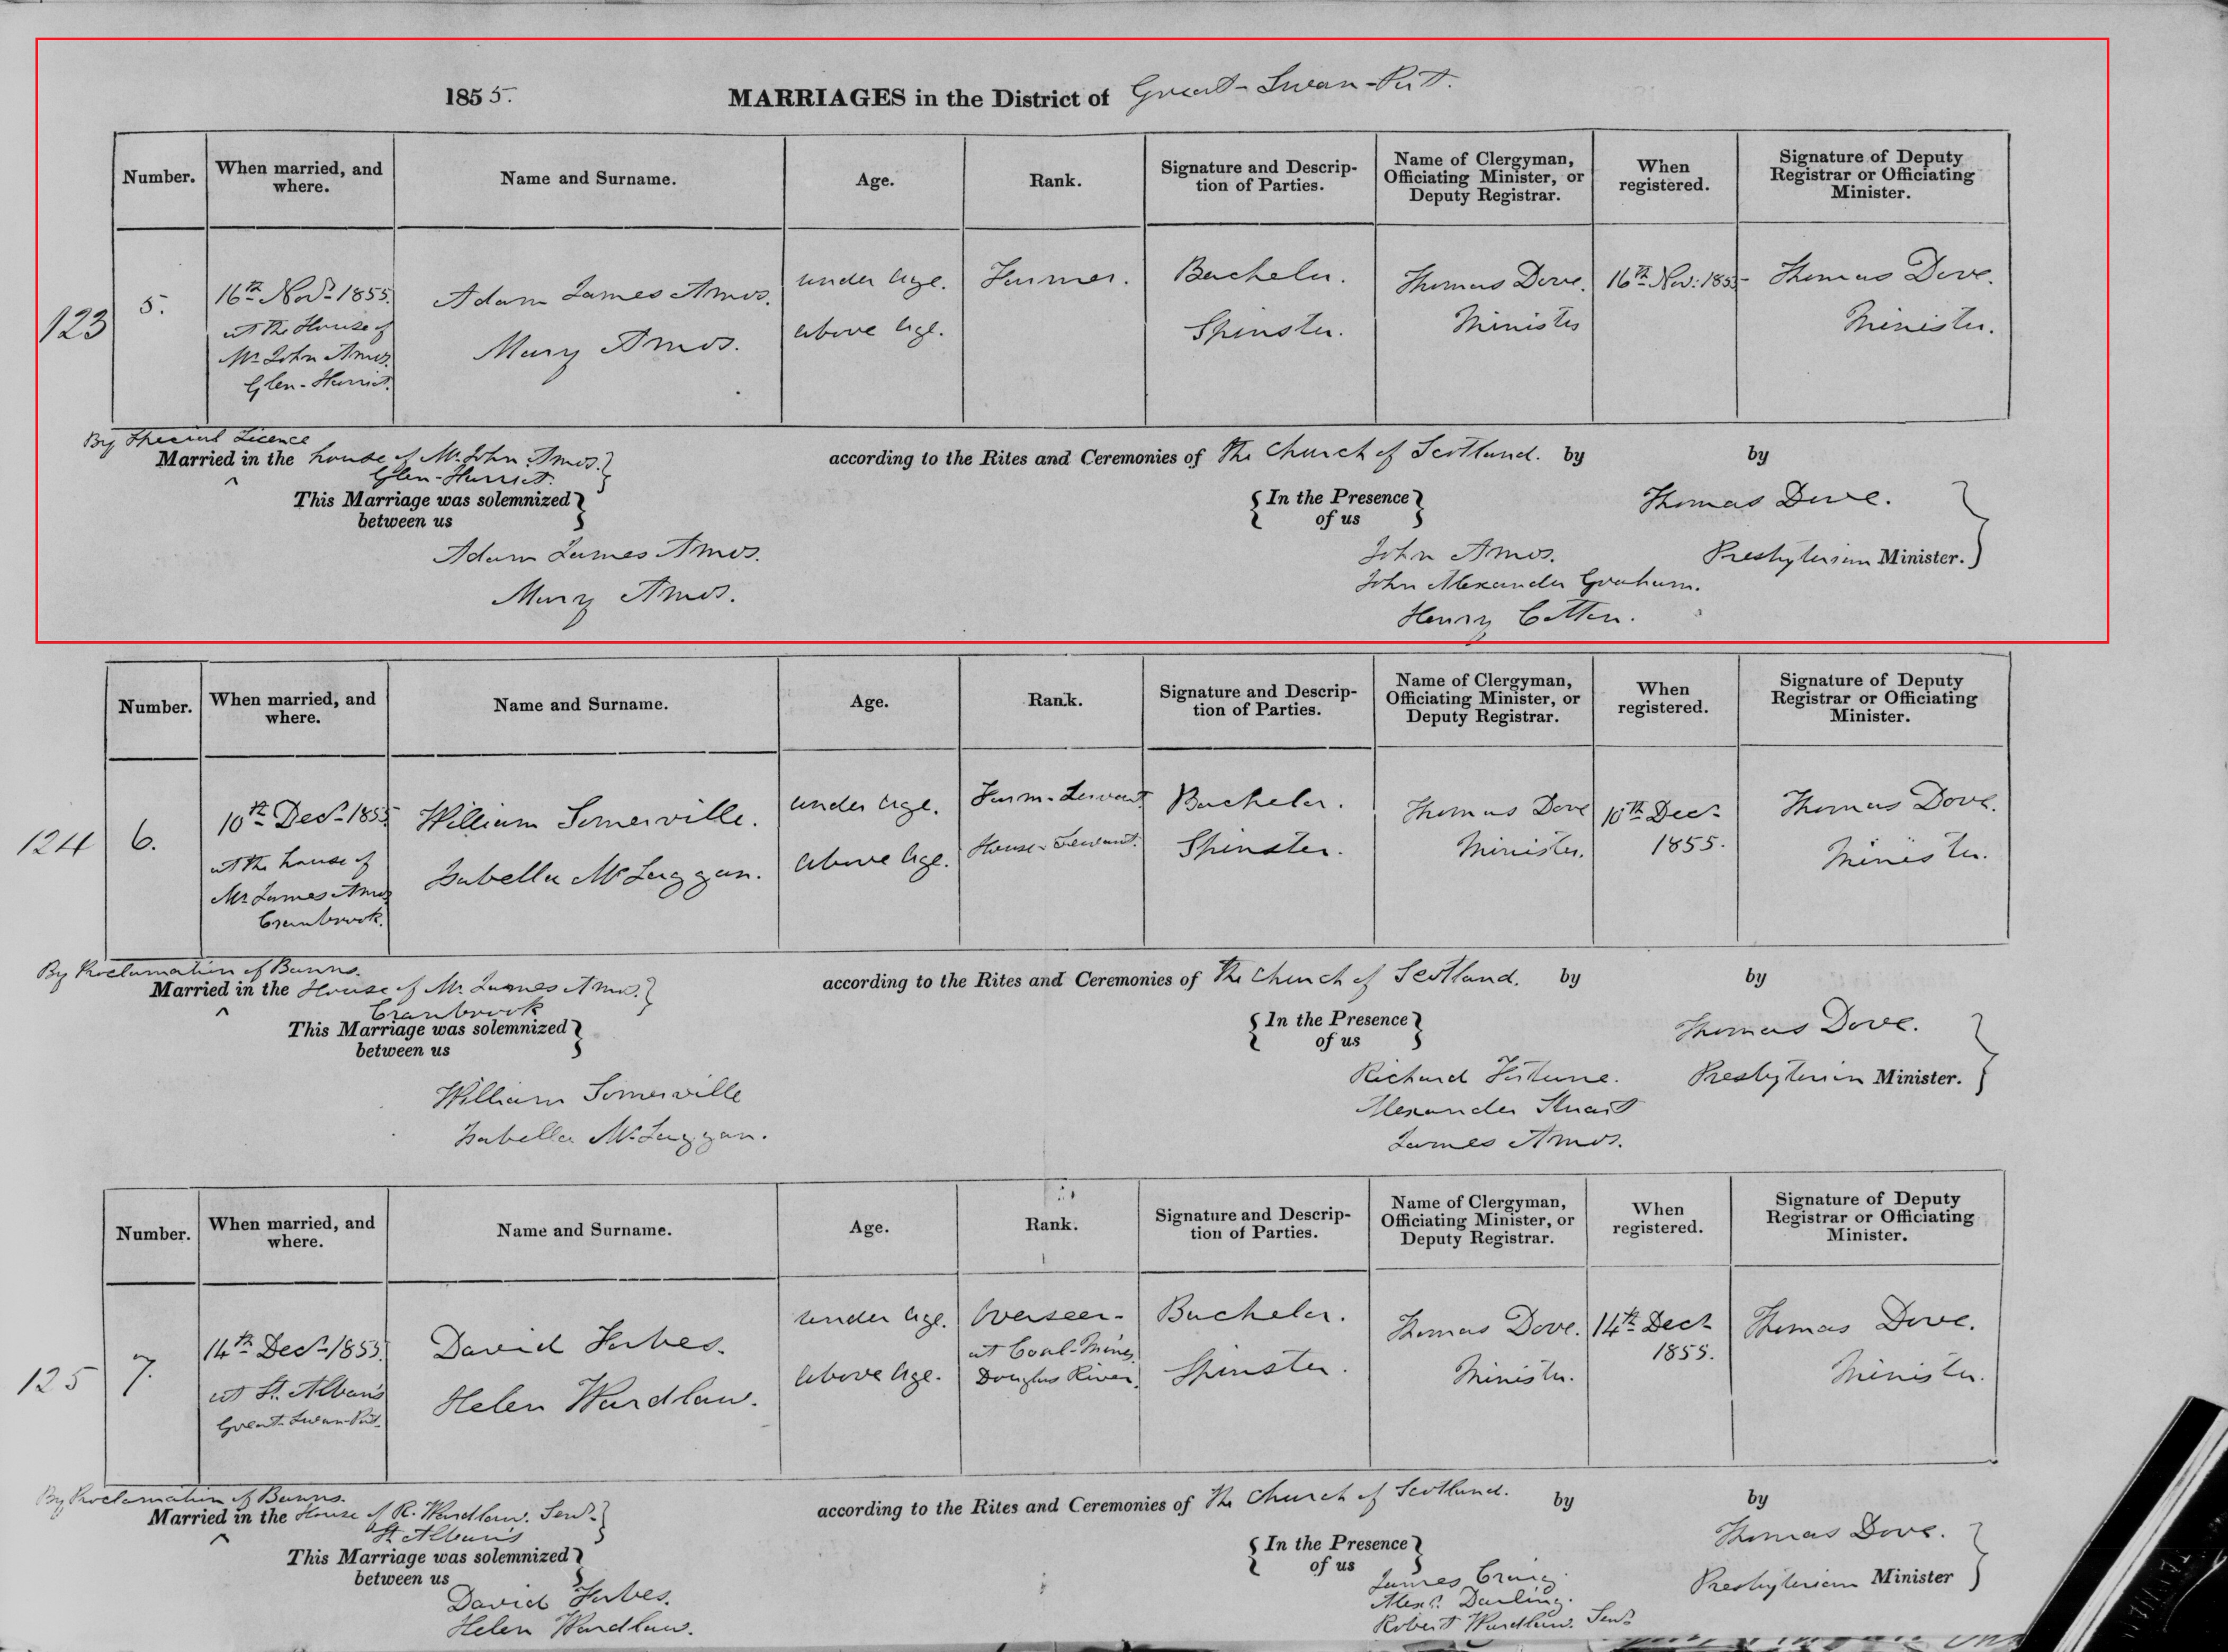 1855. MARRIAGES in the District of Great-Swan-Port.
Number. When married, and where. Name and Surname. Age. Rank. Signature and Description of Parties. Name of Clergyman, Officiating Minister, or Deputy Registrar. When registered. Signature of Deputy Registrar or Officiating Minister.
123 5. 16th Novr 1855. Adam James Amos. under Age. Farmer. Bachelor. Thomas Dove. 16th Nov: 1855- Thomas Dove.
at the House of Mary Amos. above Age. Spinster. Minister Minister.
Mr John Amos.
Glen-Harriet.
By Special Licence
Married in the house of Mr. John Amos. according to the Rites and Ceremonies of the Church of Scotland. by by
Glen-Harriet.
This Marriage was solemnized between us
In the Presence of us
Thomas Dove.
Adam James Amos. John Amos. Presbyterian Minister.
Mary Amos. John Alexander Graham.
Henry Cotton.
Number. When married, and where. Name and Surname. Age. Rank. Signature and Description of Parties. Name of Clergyman, Officiating Minister, or Deputy Registrar. When registered. Signature of Deputy Registrar or Officiating Minister.
124 6. 10th Decr 1855. William Somerville. under Age. Farm-Servant. Bachelor. Thomas Dove 10th Decr Thomas Dove.
at the house of Isabella McLaggan. above Age. House-Servant. Spinster. Minister. 1855. Minister.
Mr James Amos
Cranbrook.
By Proclamation of Banns.
Married in the House of Mr. James Amos. according to the Rites and Ceremonies of the Church of Scotland. by by
Cranbrook
This Marriage was solemnized between us
In the Presence of us
Thomas Dove.
William Somerville Richard Fortune. Presbyterian Minister.
Isabella McLaggan. Alexander Stuart
James Amos.
Number. When married, and where. Name and Surname. Age. Rank. Signature and Description of Parties. Name of Clergyman, Officiating Minister, or Deputy Registrar. When registered. Signature of Deputy Registrar or Officiating Minister.
125 7. 14th Decr 1855. David Forbes. under Age. Overseer- Bachelor. Thomas Dove. 14th Decr Thomas Dove.
at St. Alban's Helen Wardlaw. above Age. at Coal-Mines. Spinster. Minister. 1855. Minister.
Great-Swan-Port. Douglas River.
By Proclamation of Banns.
Married in the House of R. Wardlaw. Senr. according to the Rites and Ceremonies of the Church of Scotland. by by
St Alban's
This Marriage was solemnized between us
In the Presence of us
Thomas Dove.
David Forbes. James Craig. Presbyterian Minister
Helen Wardlaw. Alexr. Darling.
Robert Wardlaw. Senr.